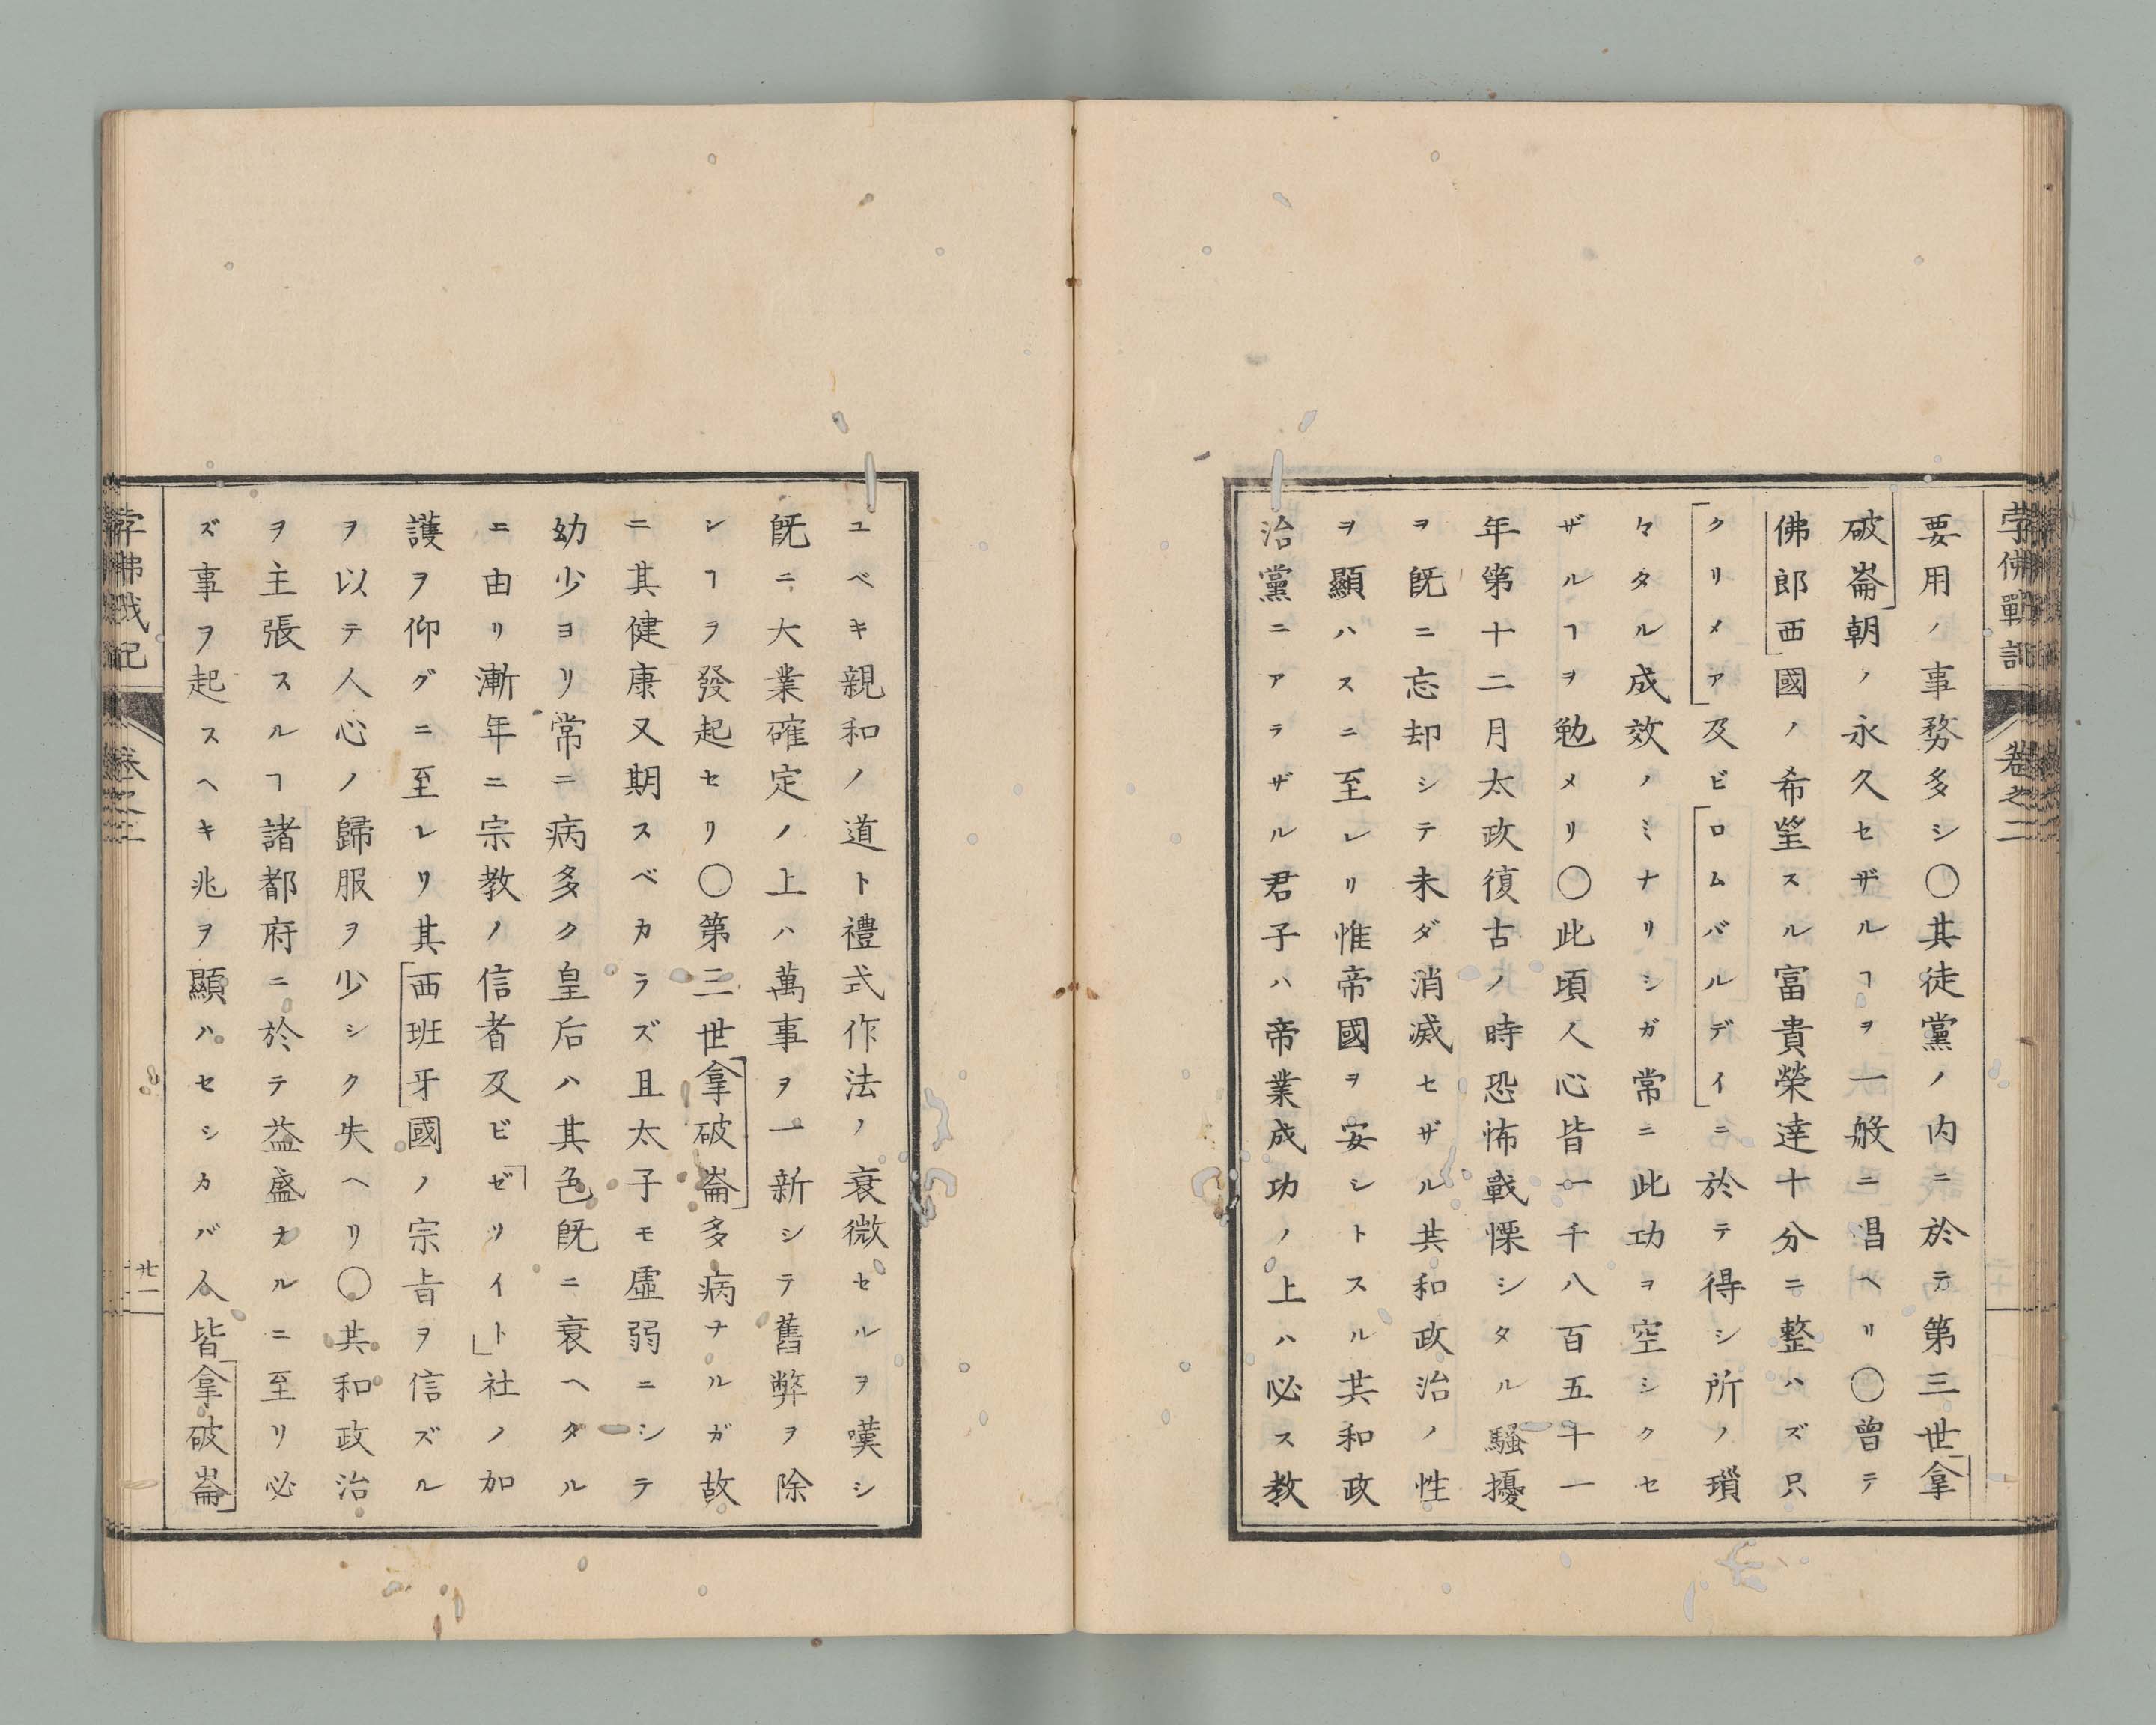 孛佛戰記
卷之二
要用ノ事務多シ〇其徒黨ノ内ニ於テ第三世拿
破崙朝ノ永久セザルヿヲ一般ニ唱ヘリ〇曾テ
佛郎西國ノ希望スル富貴榮達十分ニ整ハズ只
クリメア及ビロムバルデイニ於テ得シ所ノ瑣
々タル成效ノミナリシガ常ニ此功ヲ空シクセ
ザルヿヲ勉メリ〇此頃人心皆一千八百五十一
年第十二月太政復古ノ時恐怖戰慄シタル騷擾
ヲ旣ニ忘却シテ未ダ消滅セザル共和政治ノ性
ヲ顯ハスニ至レリ惟帝國ヲ安シトスル共和政
治黨ニアラザル君子ハ帝業成功ノ上ハ必ス教
ユベキ親和ノ道ト禮式作法ノ衰微セルヲ嘆シ
旣ニ大業確定ノ上ハ萬事ヲ一新シテ舊弊ヲ除
ンヿヲ發起セリ〇第三世拿破崙多病ナルガ故
ニ其健康又期スベカラズ且太子モ虛弱ニシテ
幼少ヨリ常ニ病多ク皇后ハ其色旣ニ衰ヘタル
ニ由リ漸年ニ宗教ノ信者及ビゼツイト社ノ加
護ヲ仰グニ至レリ其西班牙國ノ宗旨ヲ信ズル
ヲ以テ人心ノ歸服ヲ少シク失ヘリ〇共和政治
ヲ主張スルヿ諸都府ニ於テ益盛ナルニ至リ必
ズ事ヲ起スヘキ兆ヲ顯ハセシカバ人皆拿破崙
孛佛戰記
卷之二
廿一